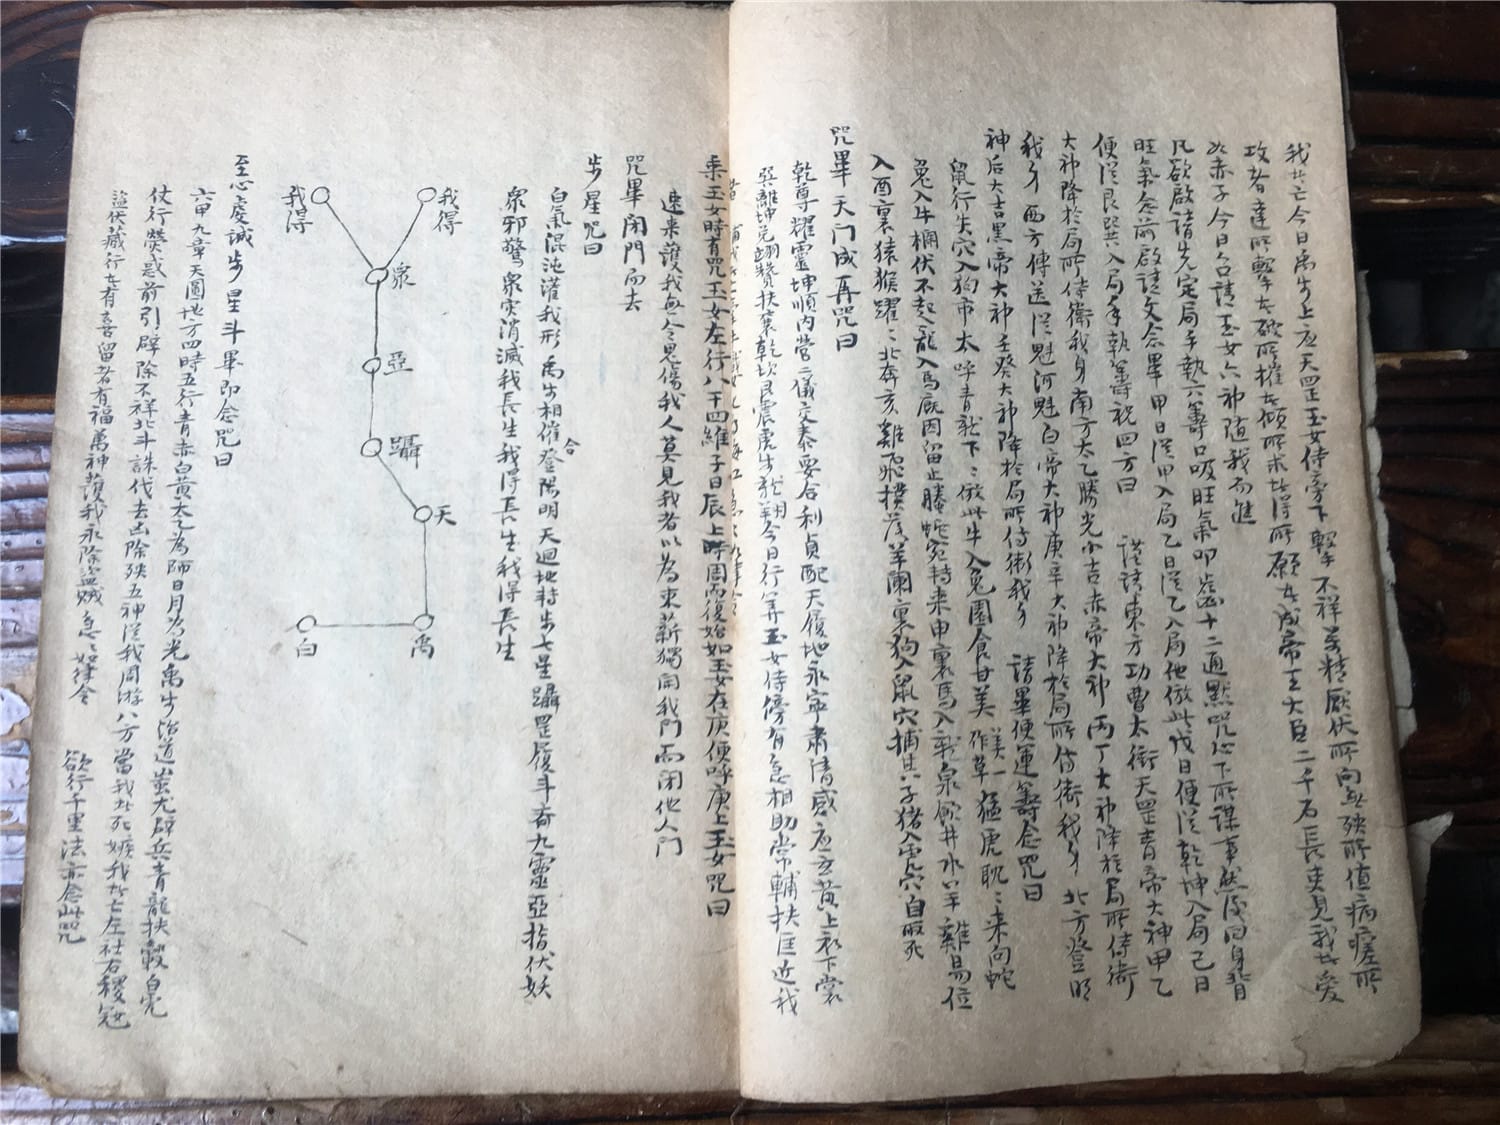 我者亡今日禹步上应天罡玉女侍旁下擊不祥萬精厭伏所向無殃所值病瘥所
攻者達所擊者破所摧者傾所求者得所願者成帝王大臣二千石長吏見我者愛
如赤子今日台請玉女六神随我而進
凡欲啟請先定局手執六籌口吸旺氣叩齒十二通黙咒心下所謀事然後回身背
旺氣念前啟請文念畢甲日從甲入局乙日從乙入局他倣此戊日便從乾坤入局己日
便從艮巽入局手執籌祝四方曰 謹請東方功曹太衝天罡青帝大神甲乙
大神降於局所侍衛我身南方太乙勝光小吉赤帝大神丙丁大神降於局所侍衛
我身西方傳送從魁河魁白帝大神庚辛大神降於局所侍衛我身北方登明
神后大吉黑帝大神壬癸大神降於局所侍衛我身 請畢便運籌念咒曰
鼠行失穴入狗市太呼青龍下下倣此牛入兔園食甘美美一作草猛虎耽耽来向蛇
兔入牛欄伏不起龍入馬厩因留止螣蛇宛轉来申裏馬入龍泉飲井水羊雞易位
入酉裏猿猴躍躍北奔亥雞飛撲落羊闌裏狗入鼠穴捕其子猪入虎穴自取死
咒畢天门成再咒曰
乾尊耀靈坤順内营二儀交泰要合利貞配天復地永寧肃清感应玄黄上衣下裳
巽離坤兌翊贊扶棄乾坎艮震虎步龍翔今日行筭玉女侍傍有急相助常輔扶匡近我
乘玉女時有咒玉女左行八干四維子日辰上時周而復始如玉女在庚便呼庚上玉女咒曰
速来護我無令鬼傷我人莫見我者以為束薪獨開我門而闭他人門
咒畢闭門而去
步星咒曰
白氣混沌灌我形禹步相催合登陽明天迴地轉步七星躡罡履斗斉九靈亞指伏妖
衆邪驚衆灾消滅我長生我得長生我得長生
我得
我得
衆
亞
躡
天
禹
白
至心虔誠步星斗畢即念咒曰
六甲九章天圓地方四時五行青赤白黄太乙為師日月为光禹步治道蚩尤辟兵青龍扶轂白虎
仗行熒惑前引辟除不祥北斗誅伐去凶除殃五神從我周游八方當我者死嫉我者亡左社右稷寇
盗伏藏行者有喜留者有福萬神護我永除盜贼急急如律令 欲行千里法亦念此咒